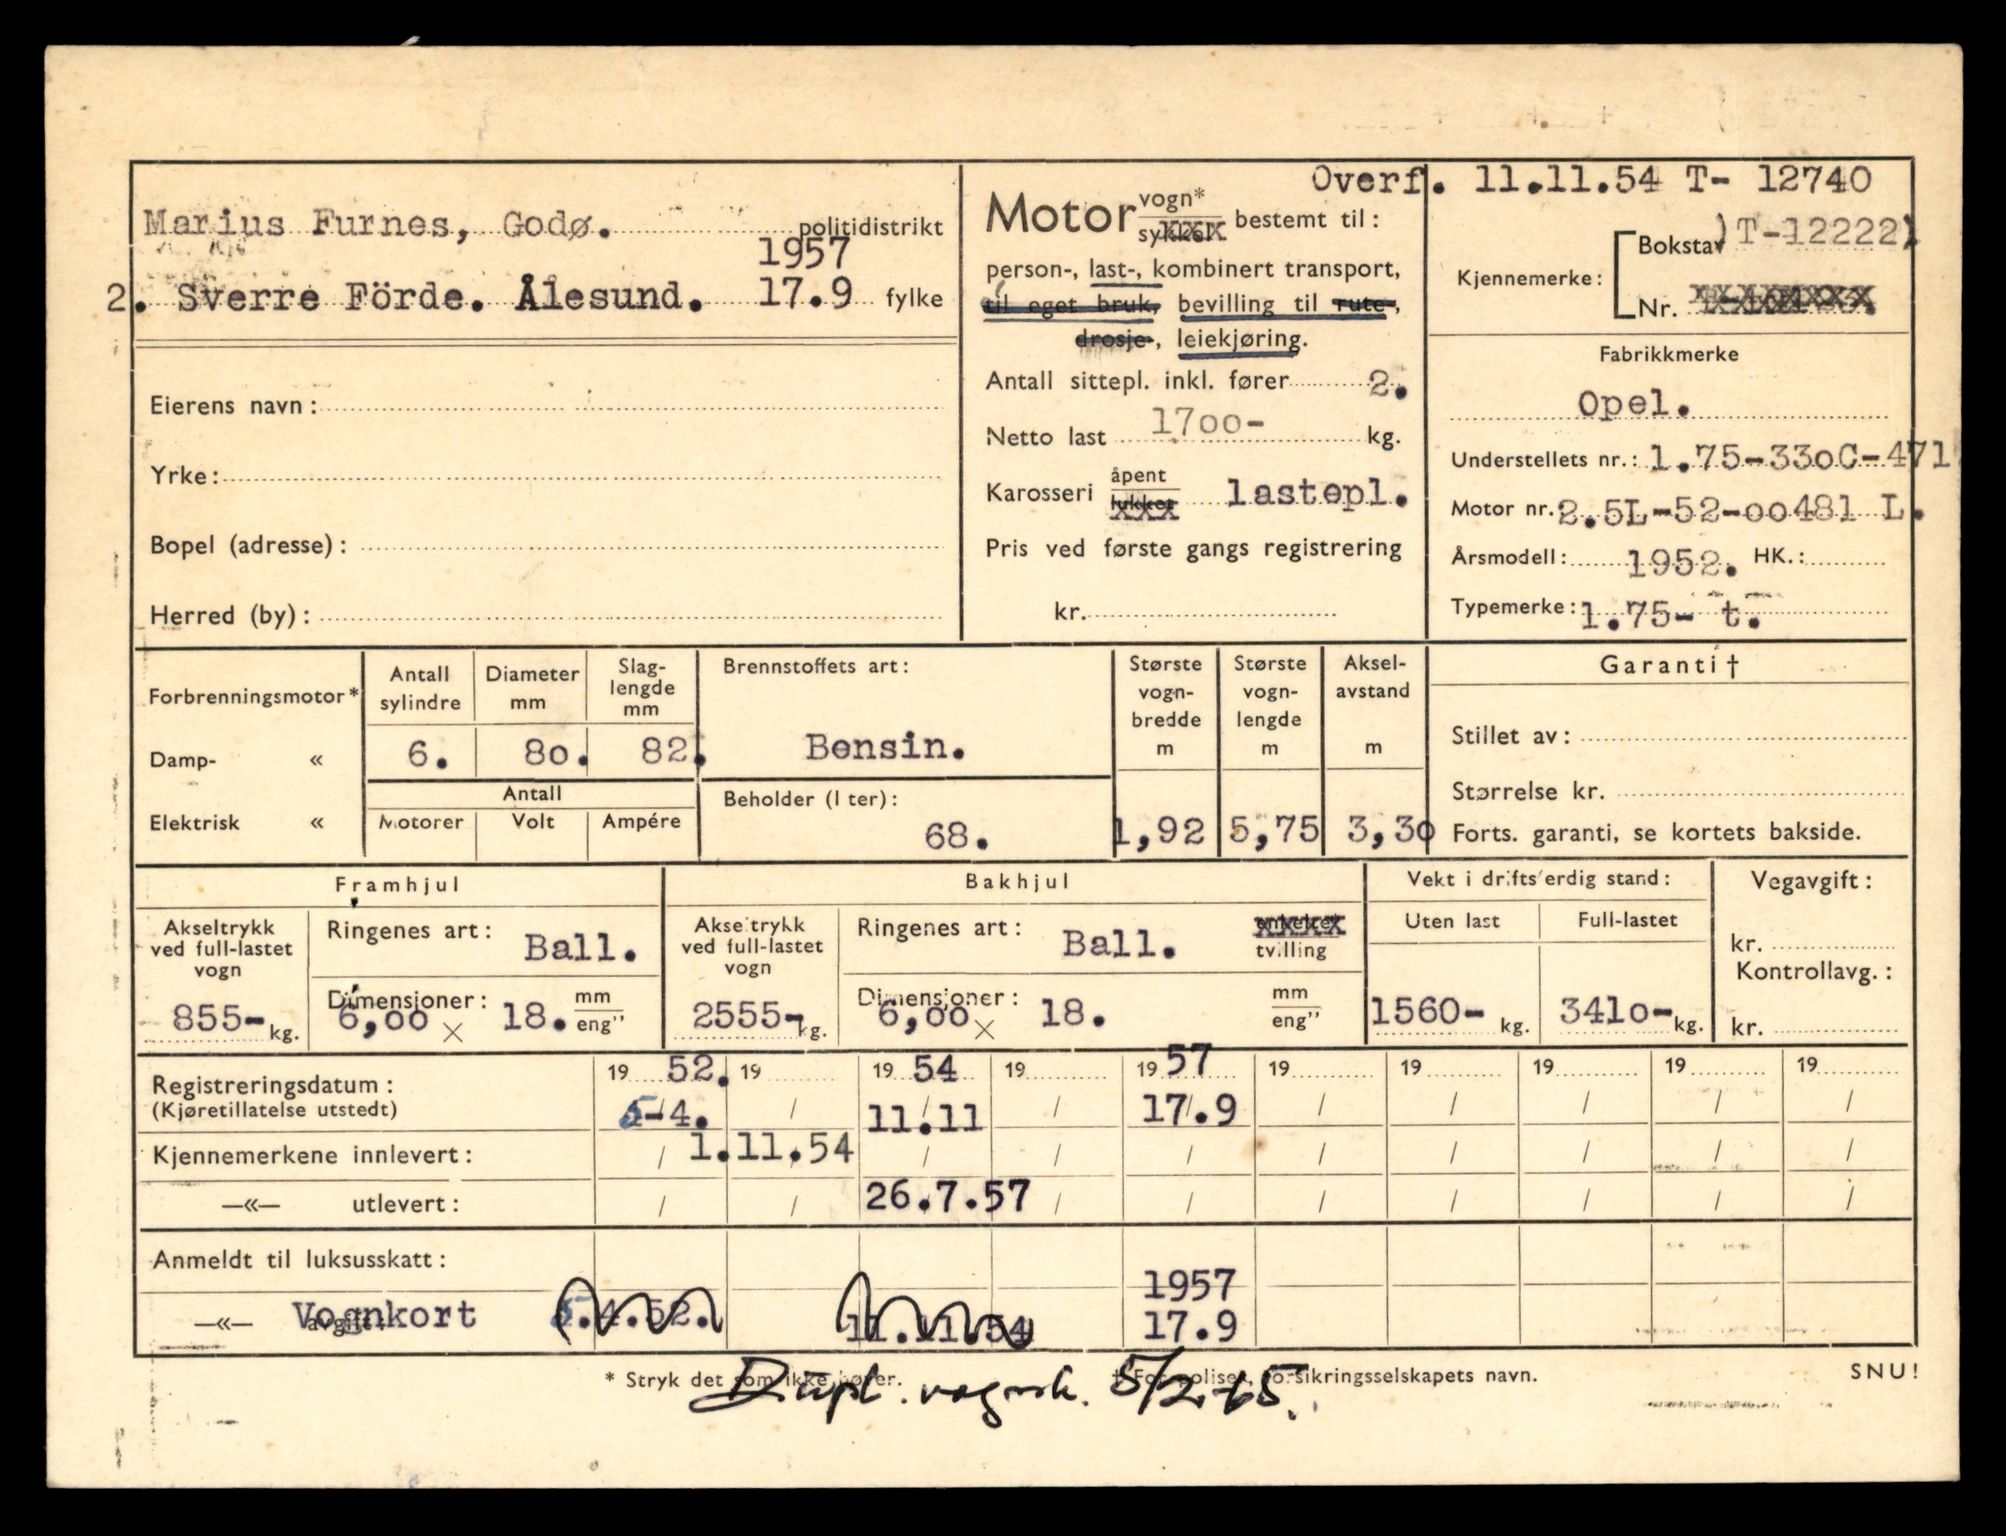 Overf. 11.11.54 T- 12740
Marius Furnes, Godø. politidistrikt
1957
2. Sverre Förde. Ålesund. 17.9 fylke
Eierens navn:
Yrke:
Bopel (adresse):
Herred (by):
Motor vogn* sykkel bestemt til:
person-, last-, kombinert transport,
til eget bruk, bevilling til rute-,
drosje-, leiekjøring.
Antall sittepl. inkl. fører 2.
Netto last 1700- kg.
Karosseri åpent lukket lastepl.
Pris ved første gangs registrering
kr.
Kjennemerke: Bokstav )T-12222)
Nr.
Fabrikkmerke
Opel.
Understellets nr.: 1.75-330C-471
Motor nr. 2.5L-52-00481 L.
Årsmodell: 1952. HK.:
Typemerke: 1.75- t.
Forbrenningsmotor*
Damp- «
Elektrisk «
Antall sylindre
6.
Diameter mm
80.
Slag-lengde mm
82.
Antall
Motorer Volt Ampére
Brennstoffets art:
Bensin.
Beholder (l ter):
68.
Største vogn-bredde m
1,92
Største vogn-lengde m
5,75
Aksel-avstand m
3,30
Garanti†
Stillet av:
Størrelse kr.
Forts. garanti, se kortets bakside.
Framhjul
Akseltrykk ved full-lastet vogn
855- kg.
Ringenes art: Ball.
Dimensjoner: 6,00 × 18. mm eng''
Bakhjul
Akseltrykk ved full-lastet vogn
2555- kg.
Ringenes art: Ball. enkelte tvilling
Dimensjoner: 6,00 × 18. mm eng''
Vekt i driftsferdig stand:
Uten last Full-lastet
1560- kg. 3410- kg.
Vegavgift:
kr.
Kontrollavg.:
kr.
Registreringsdatum: 19 52. 19 19 54 19 19 57 19 19 19 19 19
(Kjøretillatelse utstedt) 5-4. / 11.11 / 17.9 / / / / /
Kjennemerkene innlevert: / 1.11.54 / / / / / / / /
—«— utlevert: / / 26.7.57 / / / / / / /
Anmeldt til luksusskatt:
1957
—«— avgift: Vognkort 5.4.52. 11.11.54 17.9
* Stryk det som ikke hører. † For polisen, forsikringsselskapets navn. SNU!
Dupl. vognk. 5/2-65.